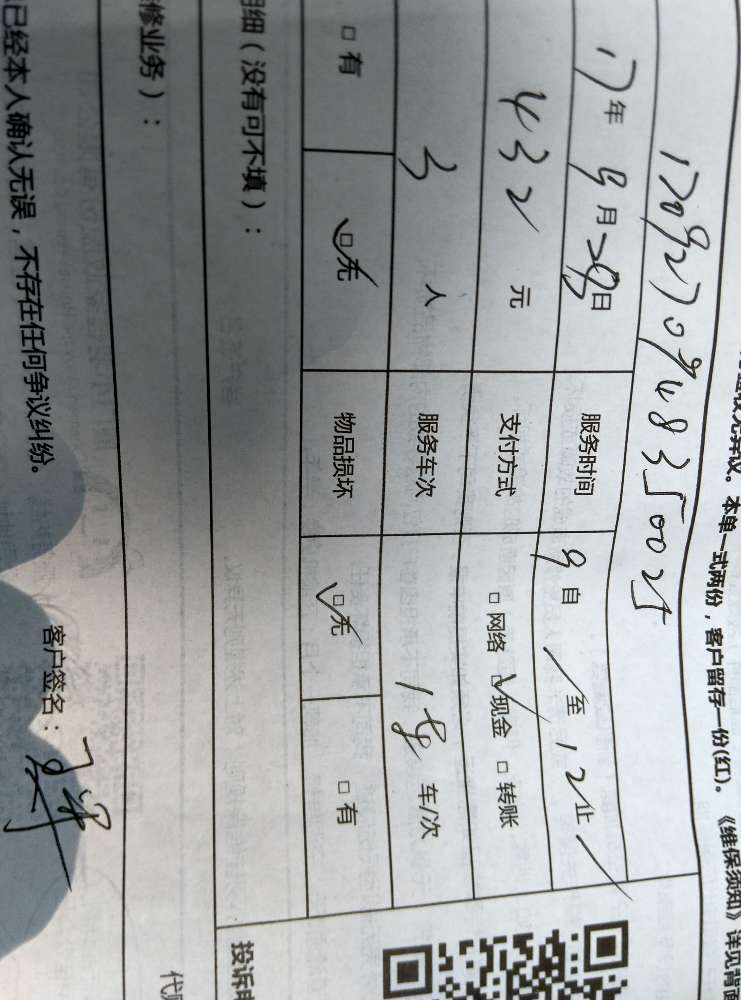 过或无异议。本单一式两份，客户留存一份(红)。《维保须知》详见背面
17年9月28日 服务时间 9自 至12止
432元 支付方式 □网络 ☑现金 □转账
3人 服务车次 车/次
□有 ☑无 物品损坏 ☑无 □有
明细（没有可不填）：
修业务）：
投诉电
已经本人确认无误，不存在任何争议纠纷。
客户签名：